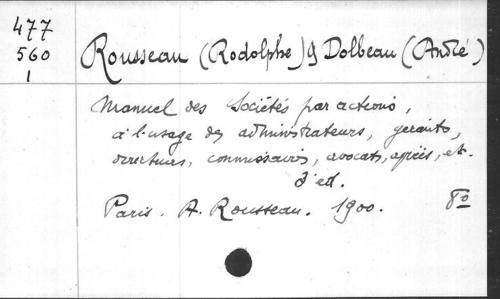 477
560
1
Rousseau (Rodolphe) & Dolbeau (André)
Manuel des Sociétés par actions,
à l'usage des administrateurs, gérants,
directeurs, commissaires, avocats, agréés, etc.
3e ed.
Paris. A. Rousseau. 1900. 8o